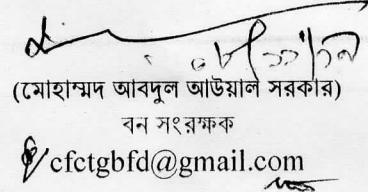 (মোহাম্মদ আবদুল আউয়াল সরকার)
বন সংরক্ষক
cfctgbfd@gmail.com